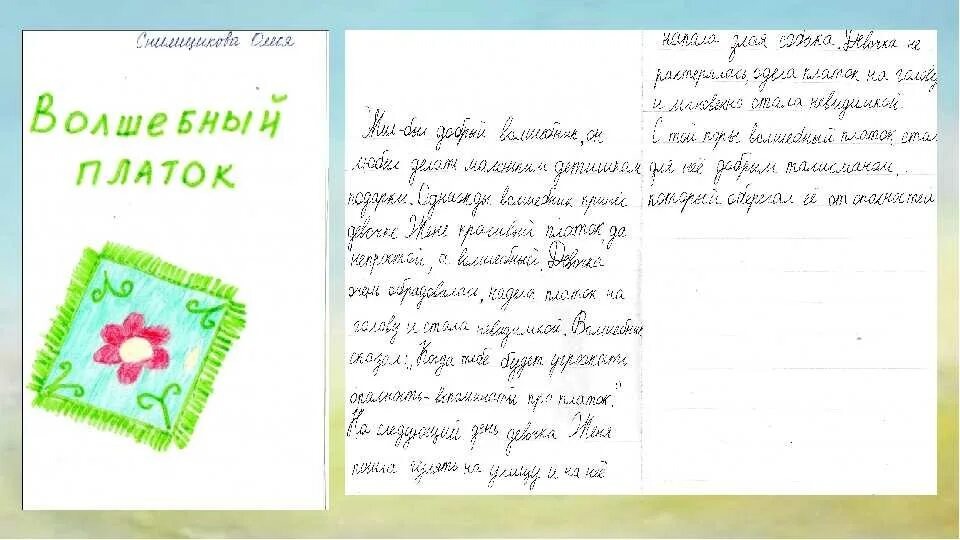 Снилщикова Олеся
Волшебный
платок
Жил-был добрый волшебник, он
любил делать маленьким детишкам
подарки. Однажды волшебник принёс
девочке Жене красивый платок, да
непростой, а волшебный. Девочка
очень обрадовалась, надела платок на
голову и стала невидимкой. Волшебник
сказал: „Когда тебе будет угрожать
опасность - вспомнить про платок."
На следующий день девочка Женя
пошла гулять на улицу и на неё
напала злая собака. Девочка не
растерялась, одела платок на голову
и мгновенно стала невидимкой.
С той поры волшебный платок стал
для неё добрым талисманом,
который оберегал её от опасностей